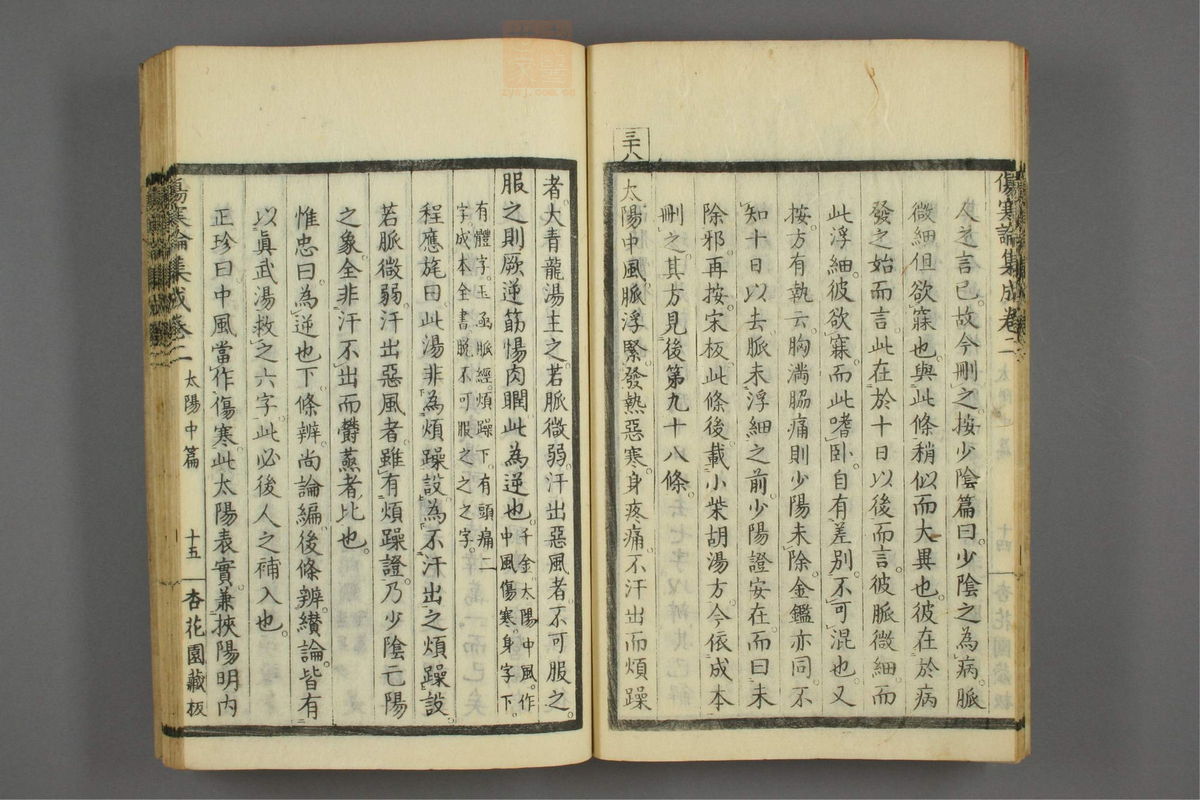 人之言已故今刪之按少陰篇曰少陰之為病脈
微細但欲寐也與此條稍似而大異也彼在於病
發之始而言此在於十日以後而言彼脈微細而
此浮細彼欲寐而此嗜臥自有差別不可混也又
按方有執云胸満脇痛則少陽未除金鑑亦同不
知十日以去脈未浮細之前少陽證安在而曰未
除邪再按宋板此條後載小柴胡湯方今依成本
刪之其方見後第九十八條
三十八
太陽中風脈浮緊發熱惡寒身疼痛不汗出而煩躁
者大青龍湯主之若脈微弱汗出惡風者不可服之
服之則厥逆筋惕肉瞤此為逆也千金太陽中風作
中風傷寒身字下
有體字玉函脈經煩躁下有頭痛二
字成本全書脫不可服之之之字
程應旄曰此湯非為煩躁設為不汗出之煩躁設
若脈微弱汗出惡風者雖有煩躁證乃少陰亡陽
之象全非汗不出而鬱蒸者比也
惟忠曰為逆也下條辨尚論編後條辨纘論皆有
以眞武湯救之六字此必後人之補入也
正珍曰中風當作傷寒此太陽表實兼挾陽明內
傷寒論集成卷二
太陽中篇
十五
杏花園藏板